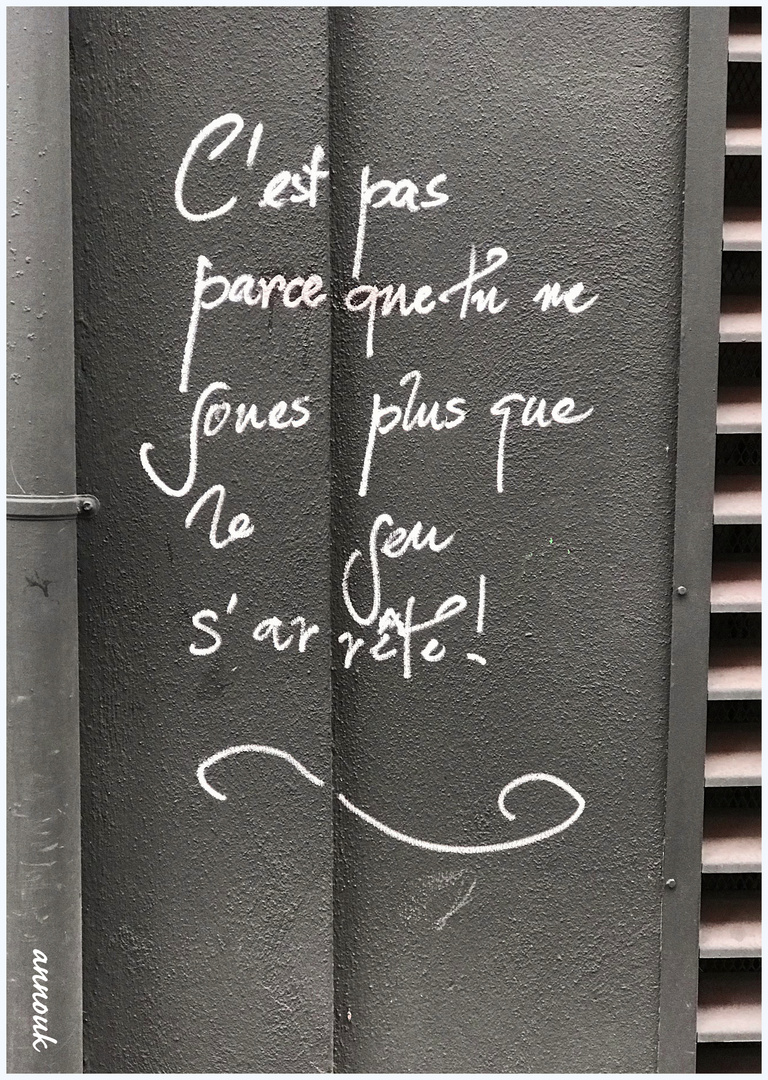 C'est pas
parce que tu ne
joues plus que
le jeu
s'arrête!
annouk